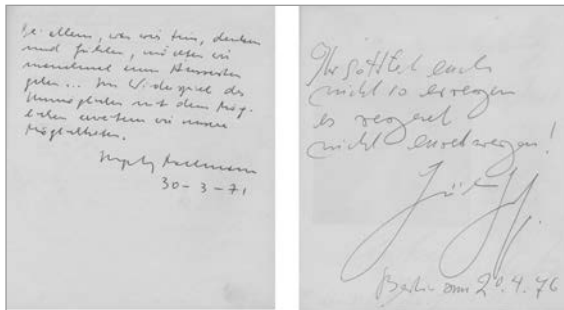 Bei allem, was wir tun, denken
und fühlen, möchten wir
manchmal zum Äussersten
gehen... Im Widerspiel des
Unmöglichen mit dem Mög-
lichen erweitern wir unsere
Möglichkeiten.
Ingeborg Bachmann
30-3-71
Ihr solltet euch
nicht so erregen
es regnet
nicht euretwegen!
Berlin am 20.4.76